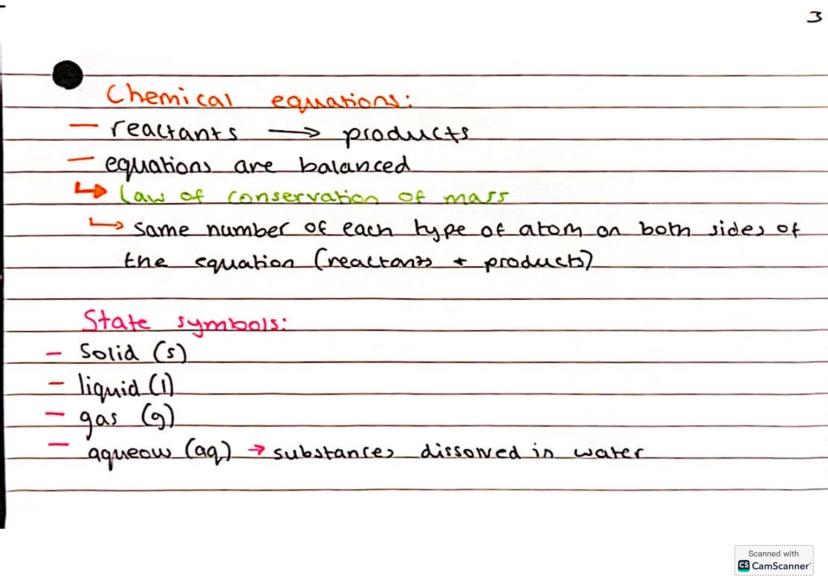 3
Chemical equations:
- reactants → products
- equations are balanced
↳ Law of conservation of mass
↳ same number of each type of atom on both sides of
the equation (reactants + products)
State symbols:
- Solid (s)
- liquid (l)
- gas (g)
- aqueous (aq) → substances dissolved in water
Scanned with
CS CamScanner